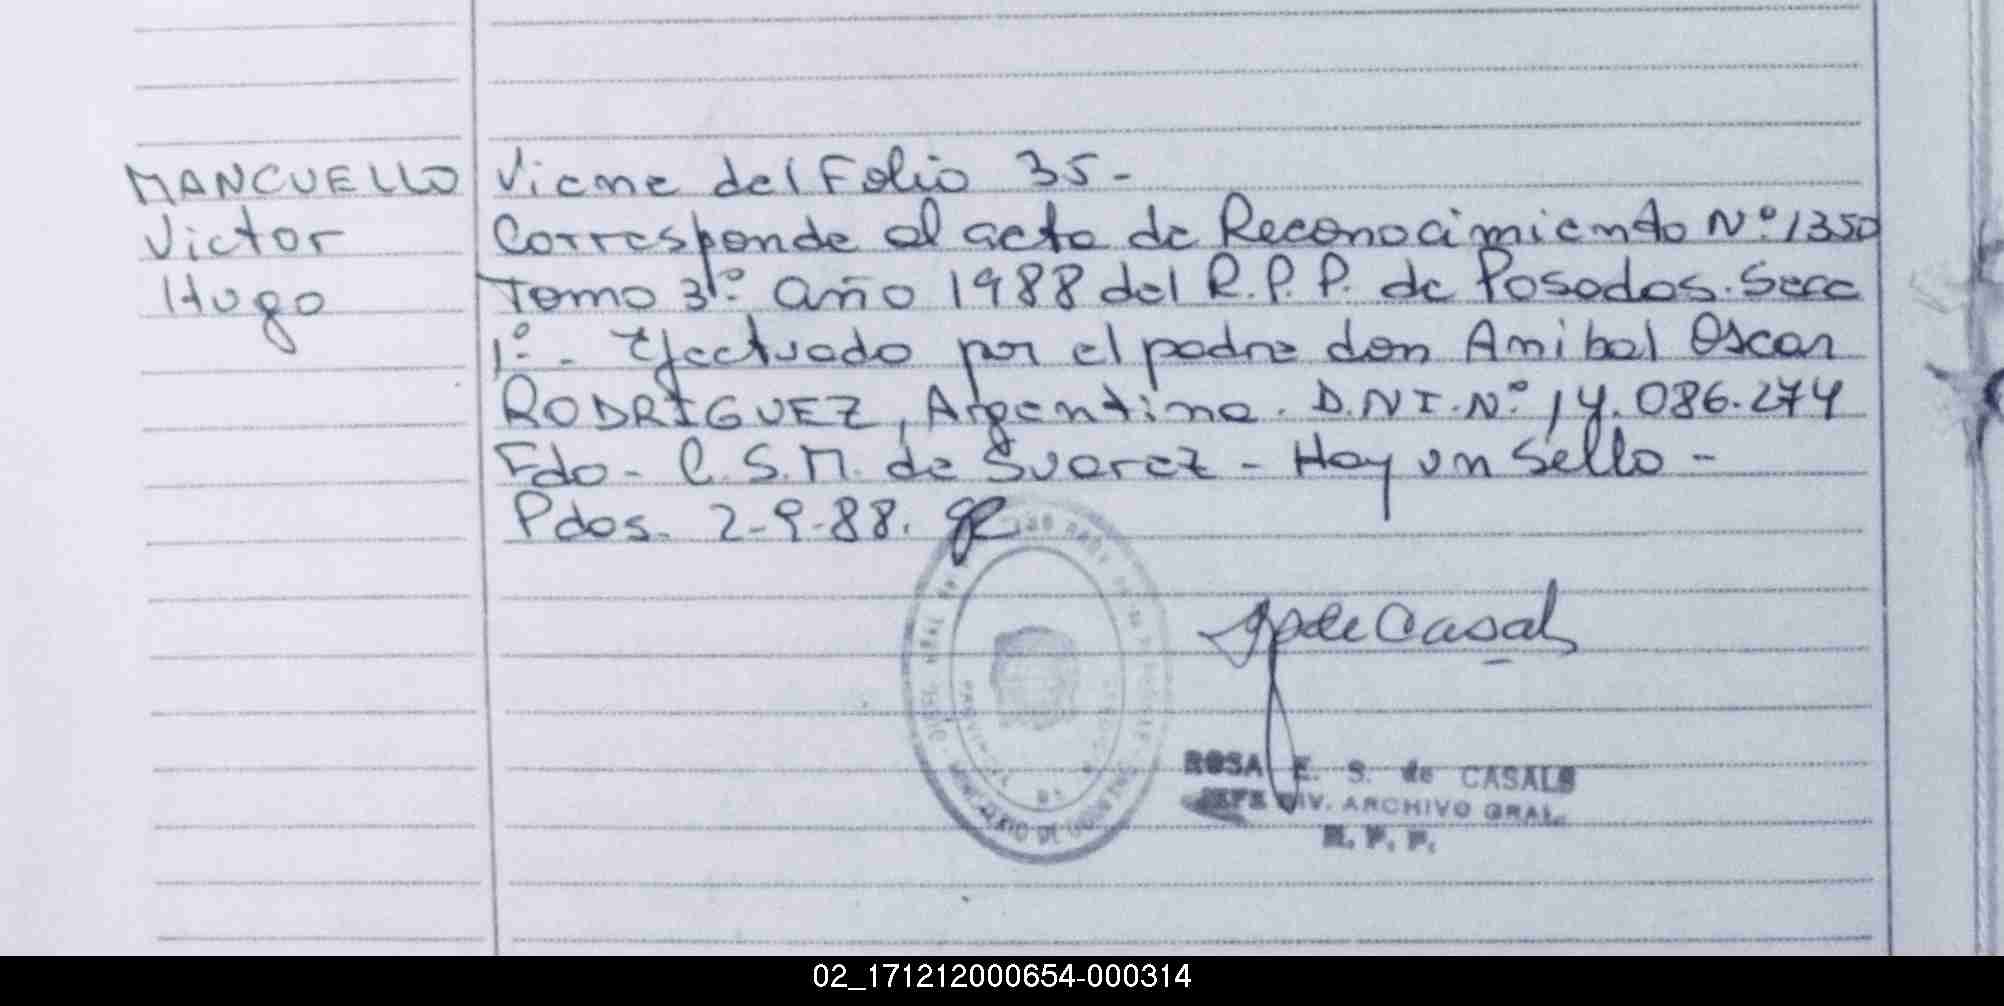 MANCUELLO
Victor
Hugo
Viene del Folio 35-
Corresponde al acta de Reconocimiento Nº 1350
Tomo 3º año 1988 del R.P.P. de Posadas. Secc
1º-. Efectuado por el padre don Anibal Oscar
RODRIGUEZ, Argentino. D.N.I. Nº 14.086.274
Fdo- C.S.M. de Suarez - Hay un sello -
Pdas. 2-9-88.
de Casals
ROSA E. S. de CASALS
JEFE DIV. ARCHIVO GRAL.
R. P. P.
02_171212000654-000314